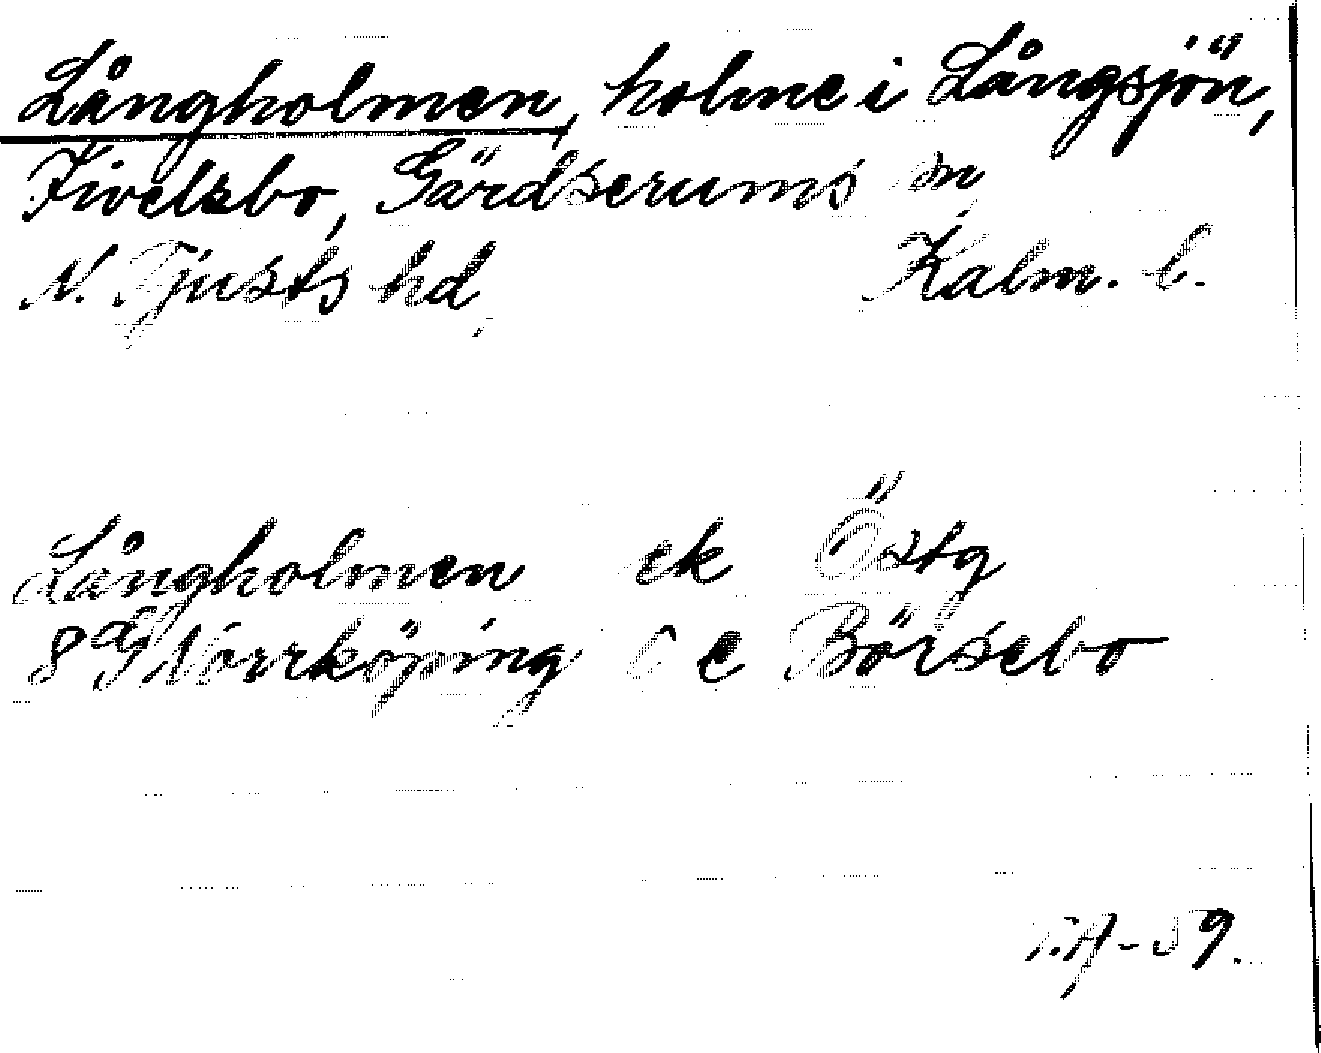 Långholmen, holme i Långsjön,
Fivelsbo, Gärdserums sn
N. Tjusts hd, Kalm. l.
Långholmen ek Östg
8 G Norrköping 0 e Börsebo
T.A-59.